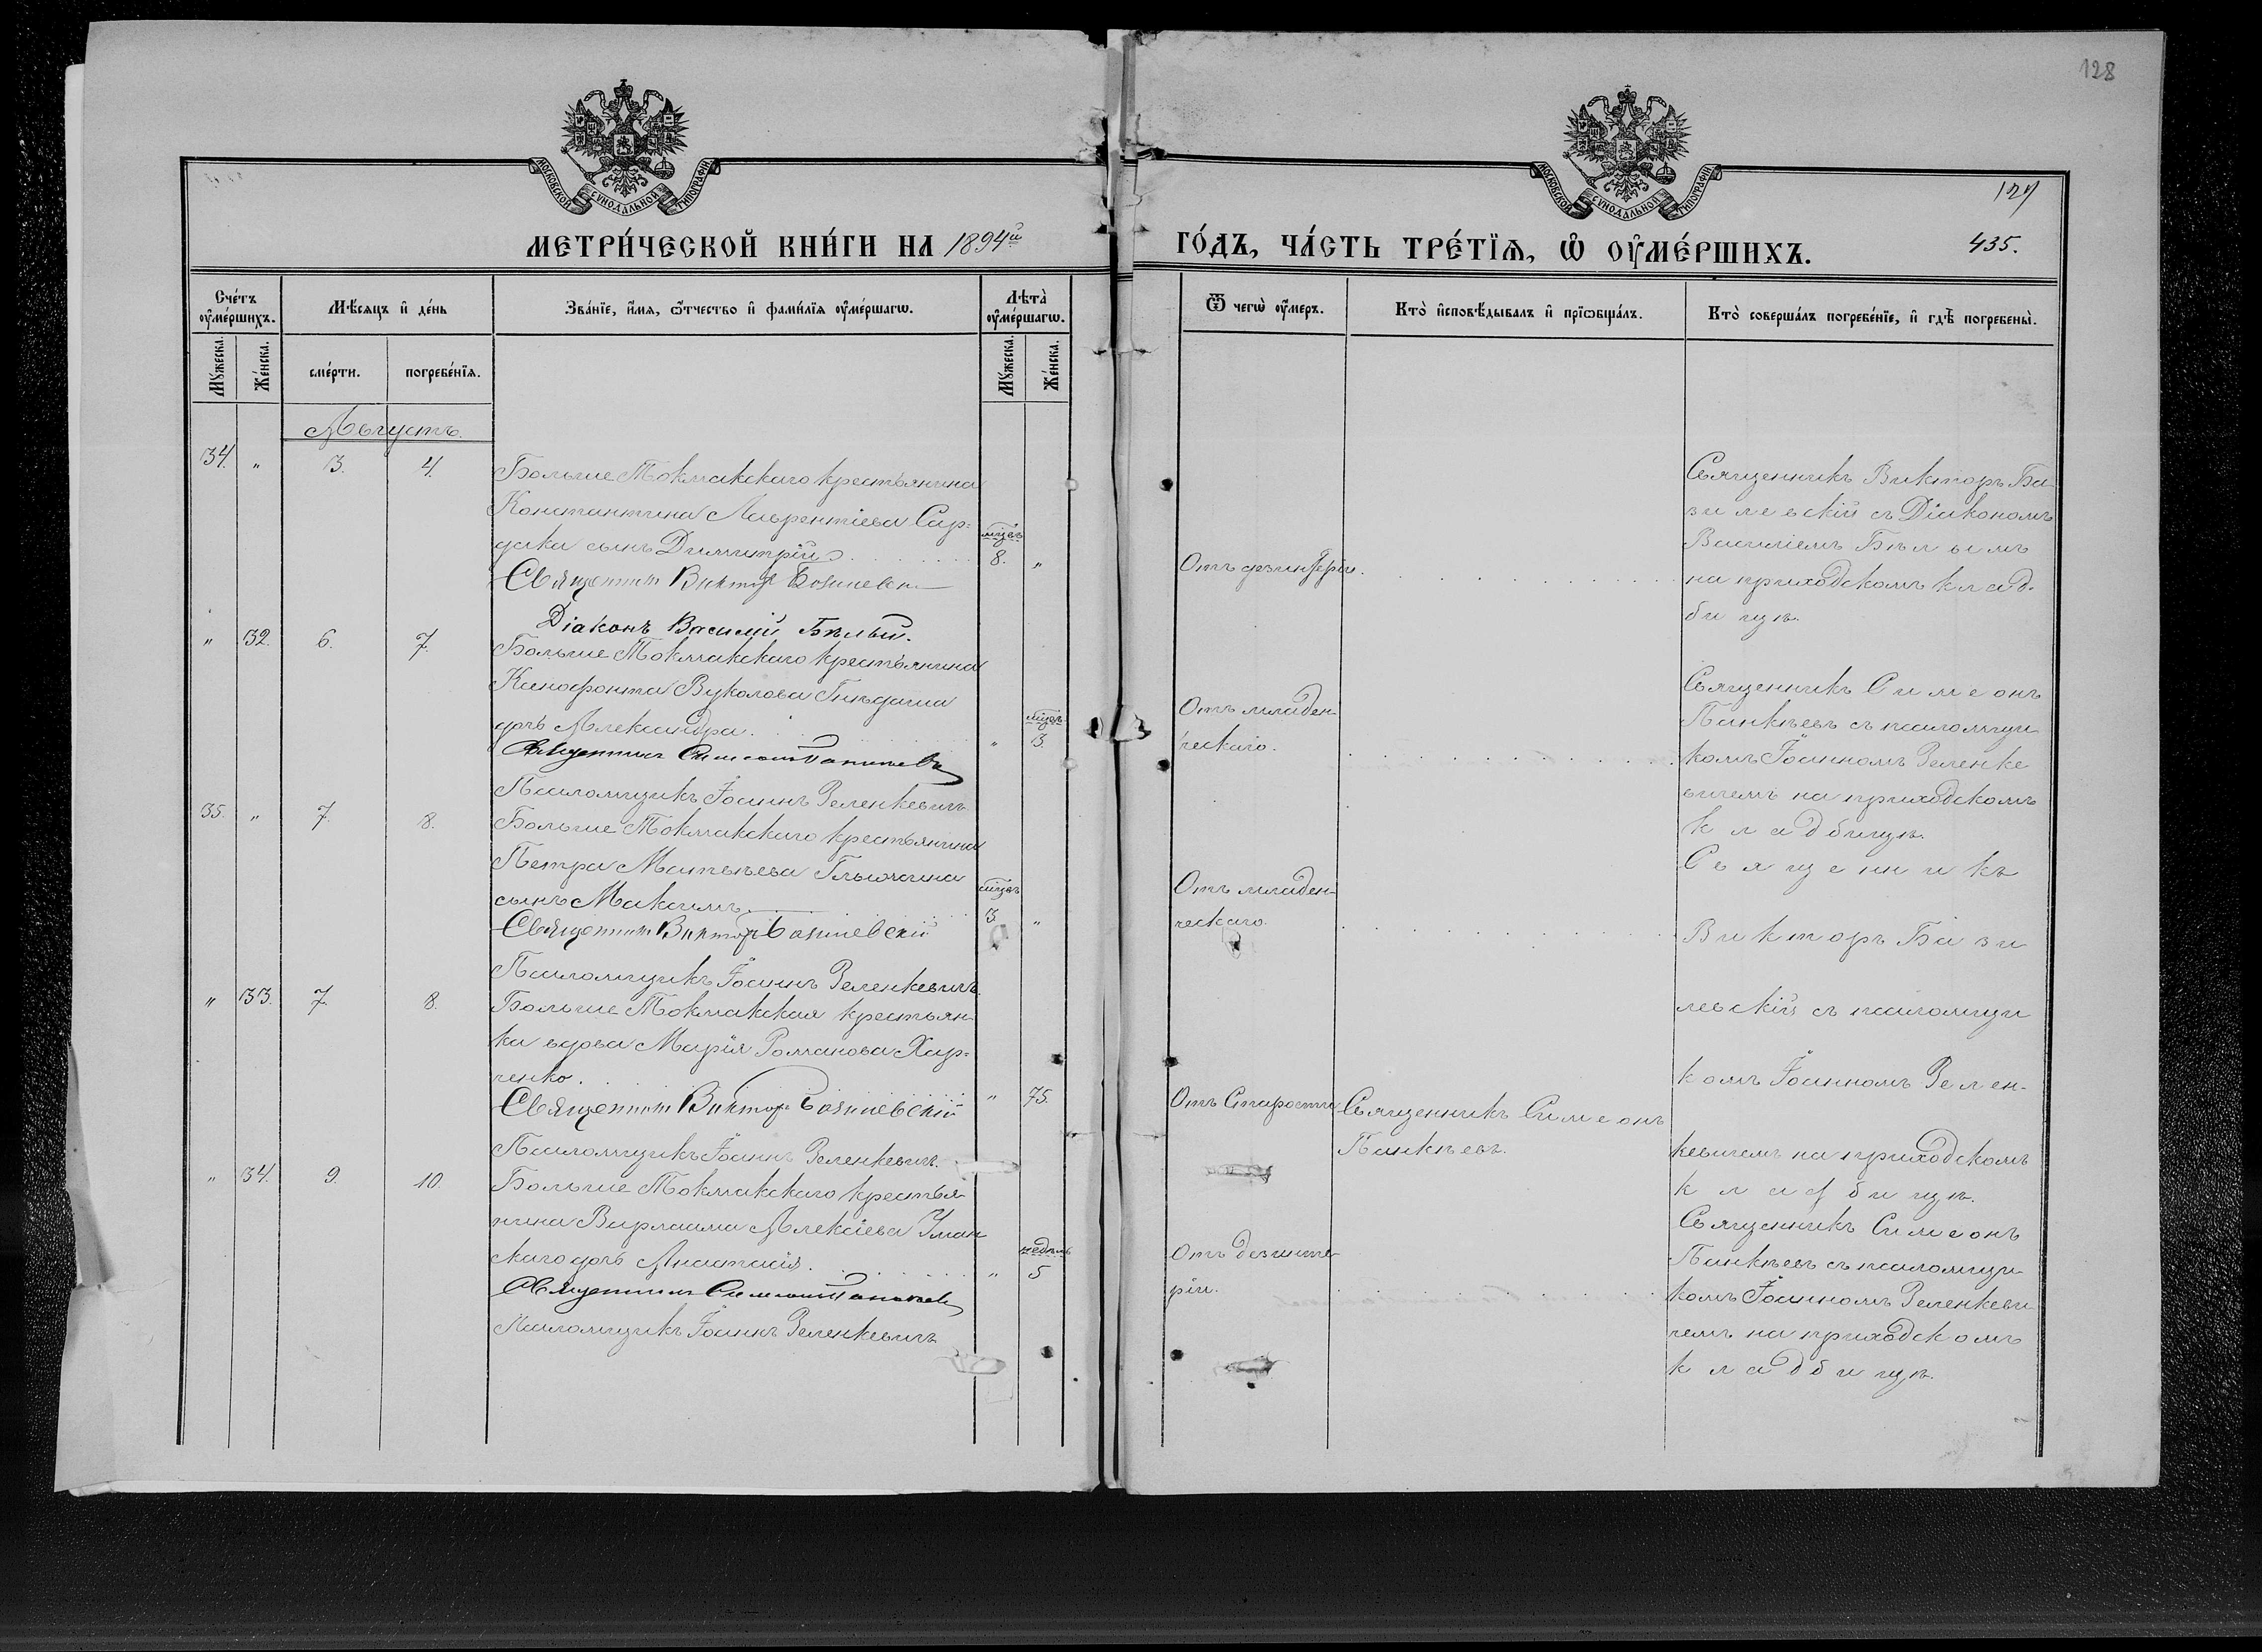 128
МОСКОВСКОЙ СѴНОДАЛЬНОЙ ТИПОГРАФІИ
МОСКОВСКОЙ СѴНОДАЛЬНОЙ ТИПОГРАФІИ
127
МЕТРИ́ЧЕСКОЙ КНИ́ГИ НА 1894й
ГО́ДЪ, ЧА́СТЬ ТРЕ́ТЇѦ, Ѡ҆ ОУ҆МЕ́РШИХЪ.
435.
Сче́тъ оу҆ме́ршихъ.
Мѣ́сяцъ и҆ де́нь
Зва́нїе, и҆́мя, ѻ҆́тчество и҆ фами́лїя оу҆ме́ршагѡ.
Лѣта̀ оу҆ме́ршагѡ.
Ѿ чегѡ̀ оу҆́меръ.
Кто̀ и҆сповѣ́дывалъ и҆ прїѡбща́лъ.
Кто̀ соверша́лъ погребе́нїе, и҆ гдѣ̀ погребены̀.
Му́жеска.
Же́нска.
сме́рти.
погребе́нїя.
Му́жеска.
Же́нска.
Августъ.
34. " 3. 4.
Больше Токмакскаго крестьянина
Константина Лаврентіева Сар=
дака сынъ Димитрій
мцев
8. "
Священникъ Виктор Базилевск
Діаконъ Василій Бѣлый.
Отъ дезинтеріи.
Священникъ Викторъ Ба
зилевскій съ Діакономъ
Василіемъ Бѣлымъ
на приходскомъ клад-
бищѣ.
" 32. 6. 7.
Больше Токмакскаго крестьянина
Ксенофонта Вуколова Гнѣдаша
дочь Александра.
мцев
" 3.
Священникъ Симеонъ Панкѣевъ
Псаломщикъ Іоаннъ Зеленкевичъ
Отъ младен-
ческаго.
Священникъ Симеонъ
Панкѣевъ съ псаломщи
комъ Іоанномъ Зеленке
вичемъ на приходскомъ
кладбищѣ.
35. " 7. 8.
Больше Токмакскаго крестьянина
Петра Матвѣева
сынъ Максимъ
мцев
3. "
Священникъ Виктор Базилевскій
Псаломщикъ Іоаннъ Зеленкевичъ.
Отъ младен-
ческаго.
Священникъ
Викторъ Бази
левскій съ псаломщи
комъ Іоанномъ Зелен-
кевичемъ на приходскомъ
кладбищѣ.
" 33. 7. 8.
Больше Токмакская крестьян-
ка вдова Марія Романова Хар=
ченко.
" 75.
Священникъ Виктор Базилевскій
Псаломщикъ Іоаннъ Зеленкевичъ.
Отъ Старости
Священникъ Симеонъ
Панкѣевъ.
" 34. 9. 10.
Больше Токмакскаго крестья-
нина Варлаама Алексіева Уман
скаго дочь Анастасія.
недѣль
" 5
Священникъ Симеонъ Панкѣевъ
Псаломщикъ Іоаннъ Зеленкевичъ
Отъ дезинте-
ріи.
Священникъ Симеонъ
Панкѣевъ съ псаломщи
комъ Іоанномъ Зеленкеви
чемъ на приходскомъ
кладбищѣ.